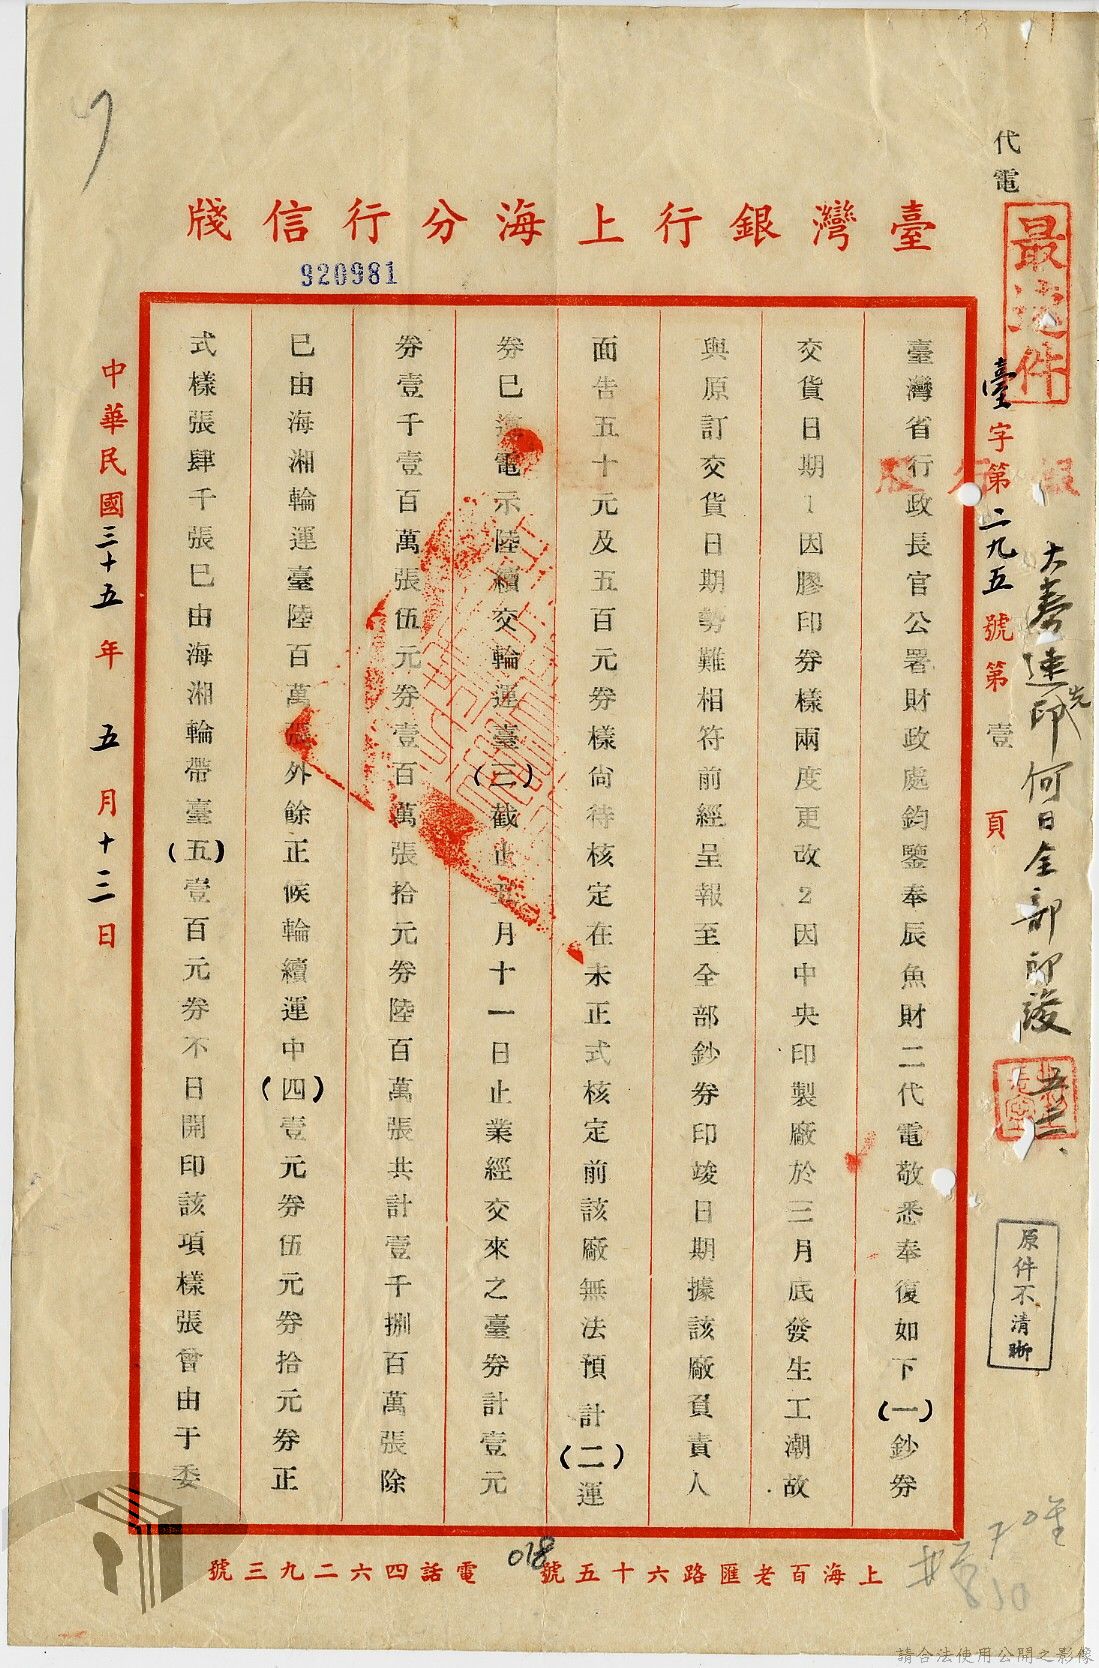 代電
最速件
臺灣銀行上海分行信牋
920981
臺字第二九五號第壹頁
臺灣省行政長官公署財政處鈞鑒奉辰魚財二代電敬悉奉復如下(一)鈔券
交貨日期1因膠印券樣兩度更改2因中央印製廠於三月底發生工潮故
與原訂交貨日期勢難相符前經呈報至全部鈔券印竣日期據該廠負責人
面告五十元及五百元券樣尙待核定在未正式核定前該廠無法預計(二)運
券已遵電示陸續交輪運臺(三)截止五月十一日止業經交來之臺券計壹元
券壹千壹百萬張伍元券壹百萬張拾元券陸百萬張共計壹千捌百萬張除
已由海湘輪運臺陸百萬張外餘正候輪續運中(四)壹元券伍元券拾元券正
式樣張肆千張已由海湘輪帶臺(五)壹百元券不日開印該項樣張曾由于委
中華民國三十五年五月十三日
何日全部印竣
原件不清晰
上海百老匯路六十五號
電話四六二九三號
018
請合法使用公開之影像